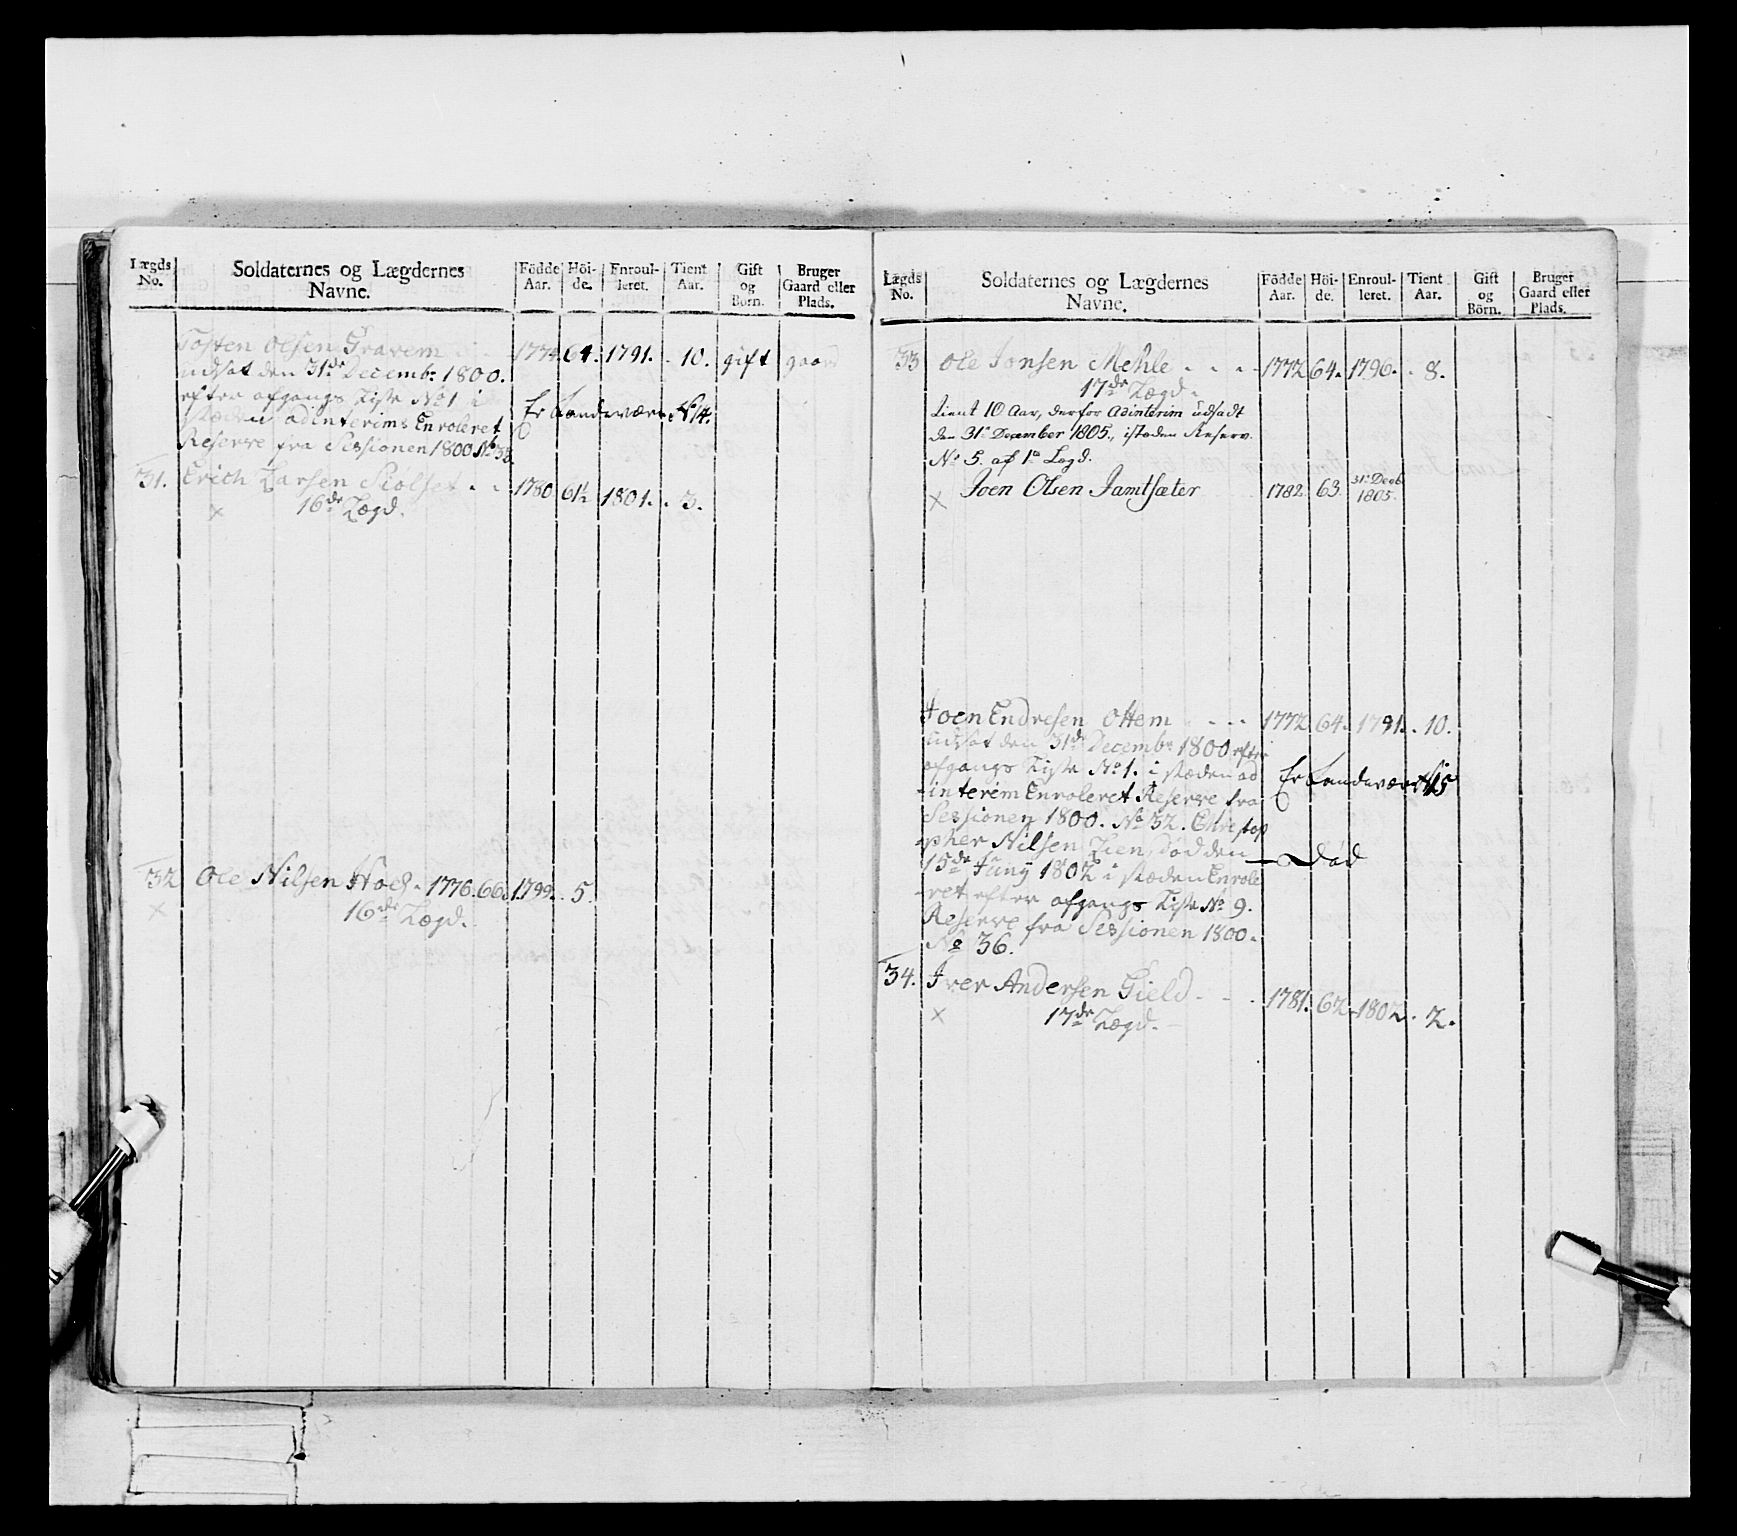 Lægds No. Soldaternes og Lægdernes Navne. Födde Aar. Höi-de. Enroul-leret. Tient Aar. Gift og Börn. Bruger Gaard eller Plads.
Tosten Olsen Gravem 1774 64. 1791. . 10. gift gaard
udsat den 31de Decembr 1800.
efter afgangs Liste No 1 i
stæden ad interims Enroleret Er Landeværn No 14.
Reserve fra Sessionen 1800 No 38.
31. Erich Larsen Skölset . . 1780 61½ 1801. . 3.
× 16de Lægd.
32 Ole Nilsen Hoel . 1776. 66. 1799. . 5.
× 16de Lægd.
Lægds No. Soldaternes og Lægdernes Navne. Födde Aar. Höi-de. Enroul-leret. Tient Aar. Gift og Börn. Bruger Gaard eller Plads.
33 Ole Jonsen Mehle . . . . 1772 64. 1796. . 8.
17de Lægd.
tient 10 Aar, derfor adinterim udsadt
den 31te December 1805., isteden Reserv.
No 5. af 1ste Lægd.
× Joen Olsen Jamtsæter 1782 63 31te Decb. 1805.
Joen Endresen Ottem . . . 1772 64. 1791. . 10.
udsat den 31de Decembr 1800 efter
afgangs Liste No 1. i stæden ad
-interim Enroleret Reserve fra Er Landeværn No 15
Sessionen 1800. No 32. Christop
pher Nilsen Lien, död den
15de Juny 1802 i stæden Enrole — Död
-ret efter afgangs Liste No 9.
Reserve fra Sessionen 1800.
No 36.
34. Iver Andersen Gield . . . 1781. 62. 1802. . 2.
× 17de Lægd.